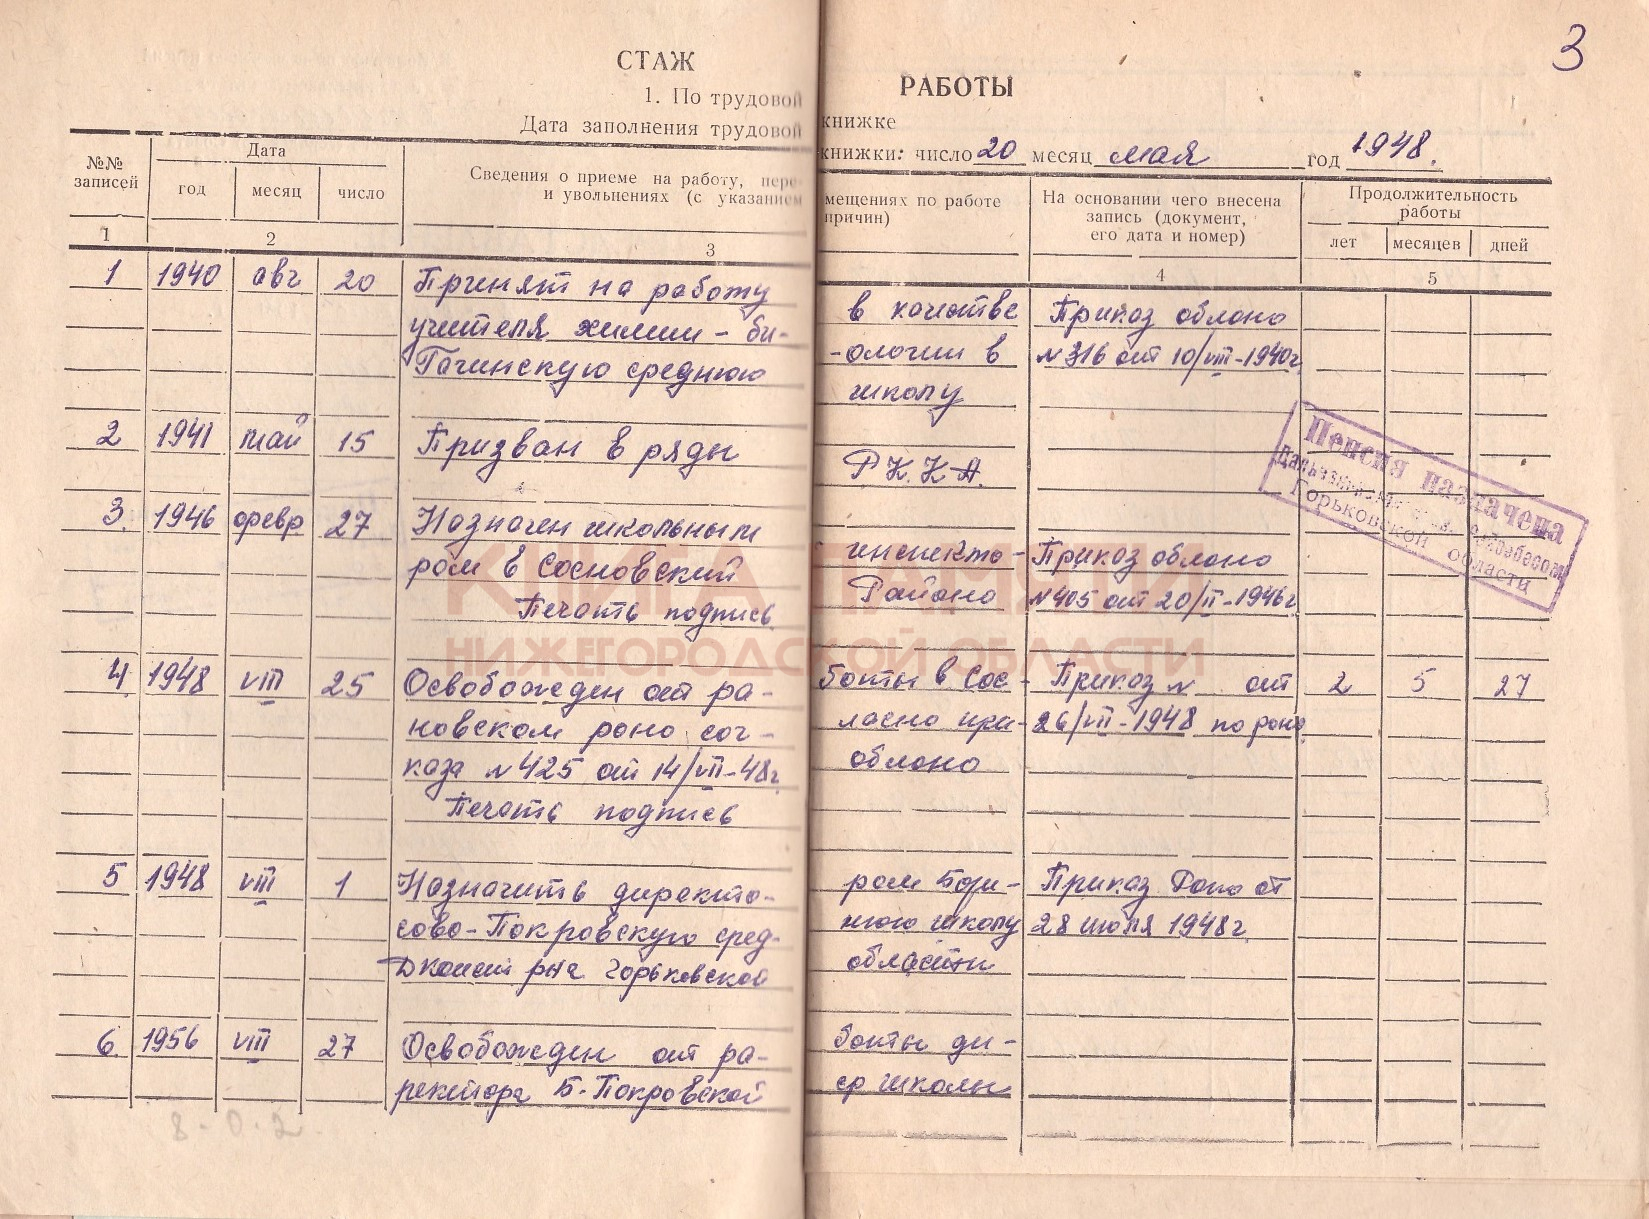 3
СТАЖ РАБОТЫ
1. По трудовой книжке
Дата заполнения трудовой книжки: число 20 месяц мая год 1948.
№№ записей
Дата
год месяц число
Сведения о приеме на работу, пере-мещениях по работе
и увольнениях (с указанием причин)
На основании чего внесена
запись (документ,
его дата и номер)
Продолжительность
работы
лет месяцев дней
1 2 3 4 5
1 1940 авг 20 Принят на работу в качестве Приказ облоно
учителя химии - би- -ологии в №316 от 10/VIII-1940г.
Гагинскую среднюю школу
2 1941 май 15 Призван в ряды Р.К.К.А.
3. 1946 февр. 27 Назначен школьным инспекто- Приказ облоно
ром в Сосновский Районо №405 от 20/II-1946г.
Печать подпись
4 1948 VIII 25 Освобожден от ра- боты в Сос- Приказ № от 2 5 27
новском роно сог- ласно при- 26/VII-1948 по роно
каза №425 от 14/VII-48г. облоно
Печать подпись
5 1948 VIII 1 Назначить директо- ром Бори- Приказ Роно от
сово-Покровскую сред- нюю школу 28 июля 1948г.
Дконст рна Горьковской области
6. 1956 VIII 27 Освобожден от ра- боты ди-
ректора Б-Покровской ср школы
8-0-2
Пенсия назначена
Горьковской области
КНИГА ПАМЯТИ
НИЖЕГОРОДСКОЙ ОБЛАСТИ